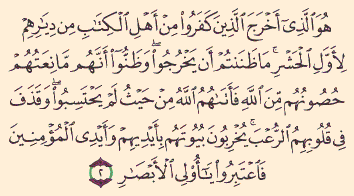 هُوَ ٱلَّذِىٓ أَخْرَجَ ٱلَّذِينَ كَفَرُوا۟ مِنْ أَهْلِ ٱلْكِتَـٰبِ مِن دِيَـٰرِهِمْ
لِأَوَّلِ ٱلْحَشْرِ ۚ مَا ظَنَنتُمْ أَن يَخْرُجُوا۟ ۖ وَظَنُّوٓا۟ أَنَّهُم مَّانِعَتُهُمْ
حُصُونُهُم مِّنَ ٱللَّهِ فَأَتَىٰهُمُ ٱللَّهُ مِنْ حَيْثُ لَمْ يَحْتَسِبُوا۟ ۖ وَقَذَفَ
فِى قُلُوبِهِمُ ٱلرُّعْبَ ۚ يُخْرِبُونَ بُيُوتَهُم بِأَيْدِيهِمْ وَأَيْدِى ٱلْمُؤْمِنِينَ
فَٱعْتَبِرُوا۟ يَـٰٓأُو۟لِى ٱلْأَبْصَـٰرِ ٢